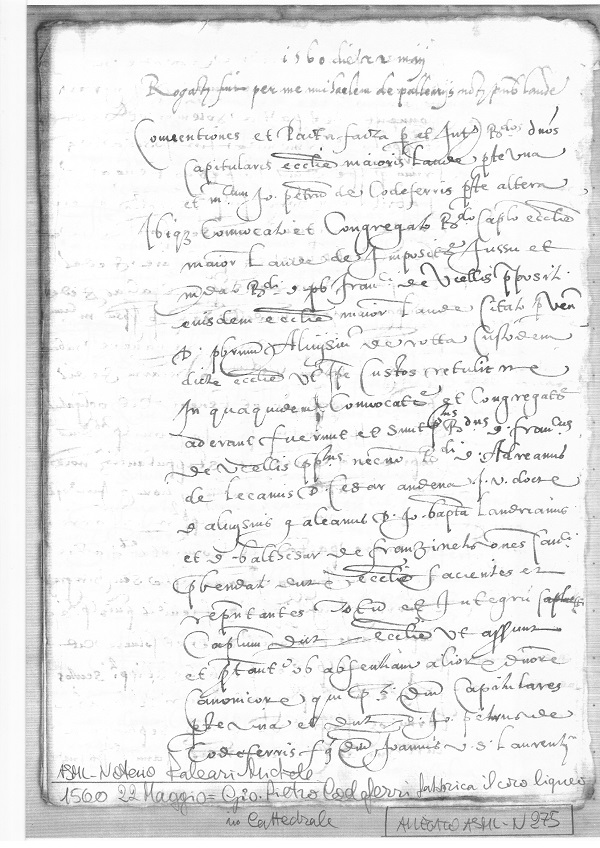 1560 die 22 maij
Rogatz fuit per me michaelem de palearijs notz pub laude
Conventiones et Pacta facta p et Inter R.dos dnos
Capitulares ecclie maioris Laude pte una
et m.cum Jo. petrum de Codeferris pte altera
Ibiqz Convocato et Congregato R.do Caplo ecclie
maior Laude de Impositoe Jussu et
mdato R.di d. pb. franc. de Vcellis pposit.
eiusdem ecclie maior Laude Citato p ven
d. pbrum Aluysium de rotta Custodem
dicte ecclie Vt ipse Custos retulit me
In qua quidem Convocatoe et Congregatoe
aderant fuerunt et sunt R.dus d. fran.cus
de Vcellis ppt.us necno R.di d. Adreanus
de Lecanus d. Cesar andena J. V. doctre
d. aluysius galeanus d. Jo. bapta Landrianus
et d. balthesar de franzinetis ones Can.ci
pbendat. dicte ecclie facientes et
repntantes totu et Integru
Caplum dict ecclie Vt assunt
et ptant ob absentiam alior dnore
Canonicore qui p.ti Dni Capitulares
pte una et dict. d. Jo. petrus de
Codeferris f.q. Dni Joannis v. s. Laurentij
ASML - Notaio Paleari Michele
1560 22 Maggio = Gio. Pietro Codaferri fabbrica il coro ligneo
in Cattedrale
ALLEGATO ASML - N 275